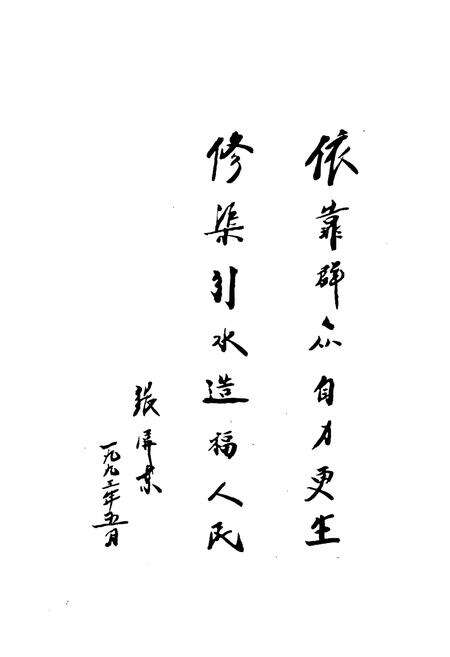 依靠群众自力更生
修渠引水造福人民
张屏东
一九九三年五月